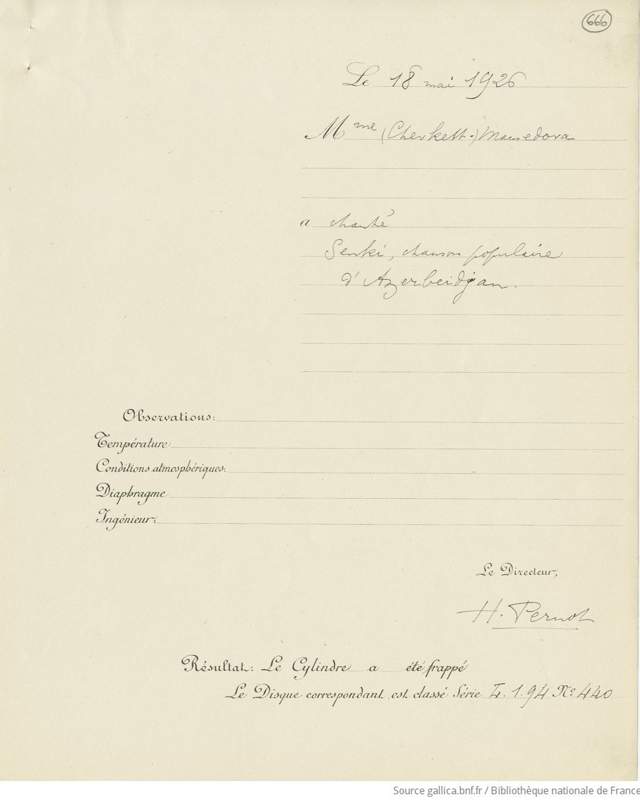 666
Le 18 mai 1926
Mme (Cherkett.) Mamedova
a chanté
Senki, chanson populaire
d'Azerbeidjan.
Observations:
Température
Conditions atmosphériques:
Diaphragme
Ingénieur:
Le Directeur,
H. Pernot
Résultat: Le Cylindre a été frappé
Le Disque correspondant est classé Série 1.94 No 440
Source gallica.bnf.fr / Bibliothèque nationale de France